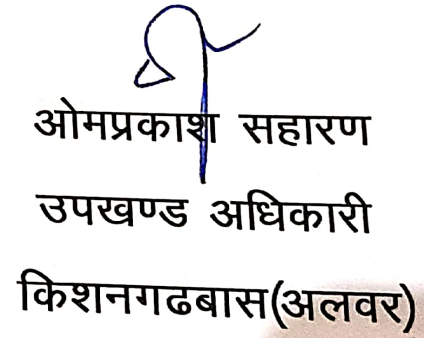 ओमप्रकाश सहारण
उपखण्ड अधिकारी
किशनगढबास(अलवर)